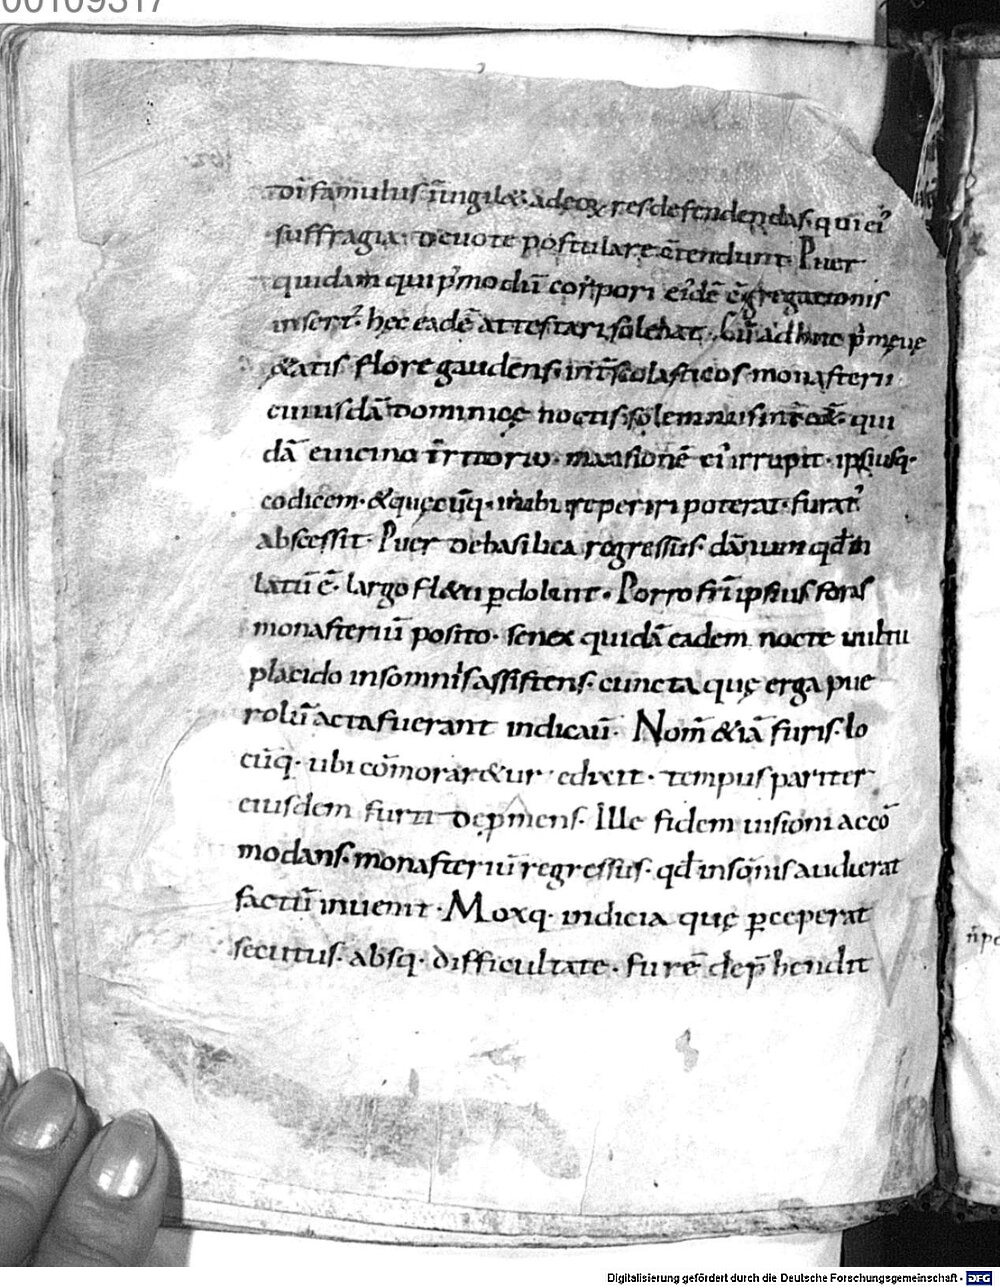 00109317
dī famulus. īuigil&. adeoꝝ res defendendas. qui ei᷒
suffragia. deuote postulare c̄tendunt. Puer
quidam qui p̓mo dū corpori eidē c̄gregationis
insert᷒. hęc eadē attestari solebat. Cū adhuc p̓męuę
&atis flore gaudens. int̄ scolasticos monasterii
cuiusdā dominicę noctis. solemniis int̄eēt. qui
dā e uicino t̄ritorio. mansionē ei᷒ irrupit. ipsiusq.
codicem. & quęcūq. inibi reperiri poterat. furat᷒
abscessit. Puer de basilica regressus. dānum qd̄ in
latū ē. largo fl&u ꝑdoluit. Porro fr̄i ipsius foras
monasteriū posito. senex quidā eadem nocte uultu
placido in somnis assistens. cuncta quę erga pue
rolū acta fuerant indicauit. Nom̄ &iā furis. lo
cūq. ubi cōmorar&ur edixit. tempus pariter
eiusdem furti dep̓mens. Ille fidem uisioni acco̅
modans. monasteriū regressus. qd̄ in sōnis audierat
factū inuenit. Moxq. indicia quę ꝑceperat
secutus. absq. difficultate. furē dep̄hendit
Digitalisierung gefördert durch die Deutsche Forschungsgemeinschaft - DFG